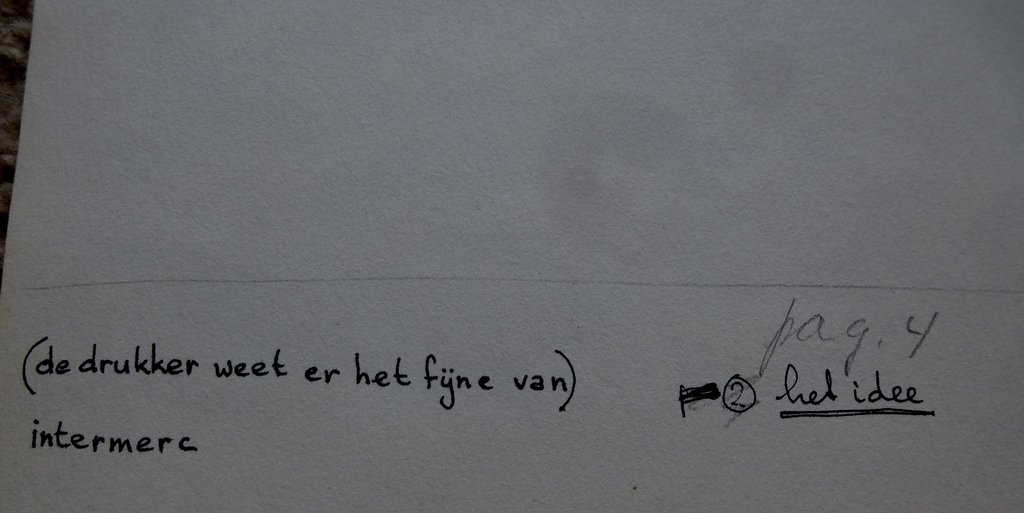 pag. 4
(de drukker weet er het fijne van)
② het idee
intermerc